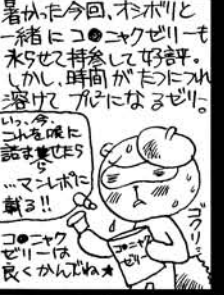 暑かった今回、オシボリと
一緒にコ●ニャクゼリーも
氷らせて持参して好評。
しかし、時間がたつにつれ
溶けてプルプルになるゼリー。
いっ、今、
これを喉に
詰ませたら
…マンレポに
載る!!
ゴクリ…
コ●ニャク
ゼリー
コ●ニャク
ゼリーは
良くかんでね★